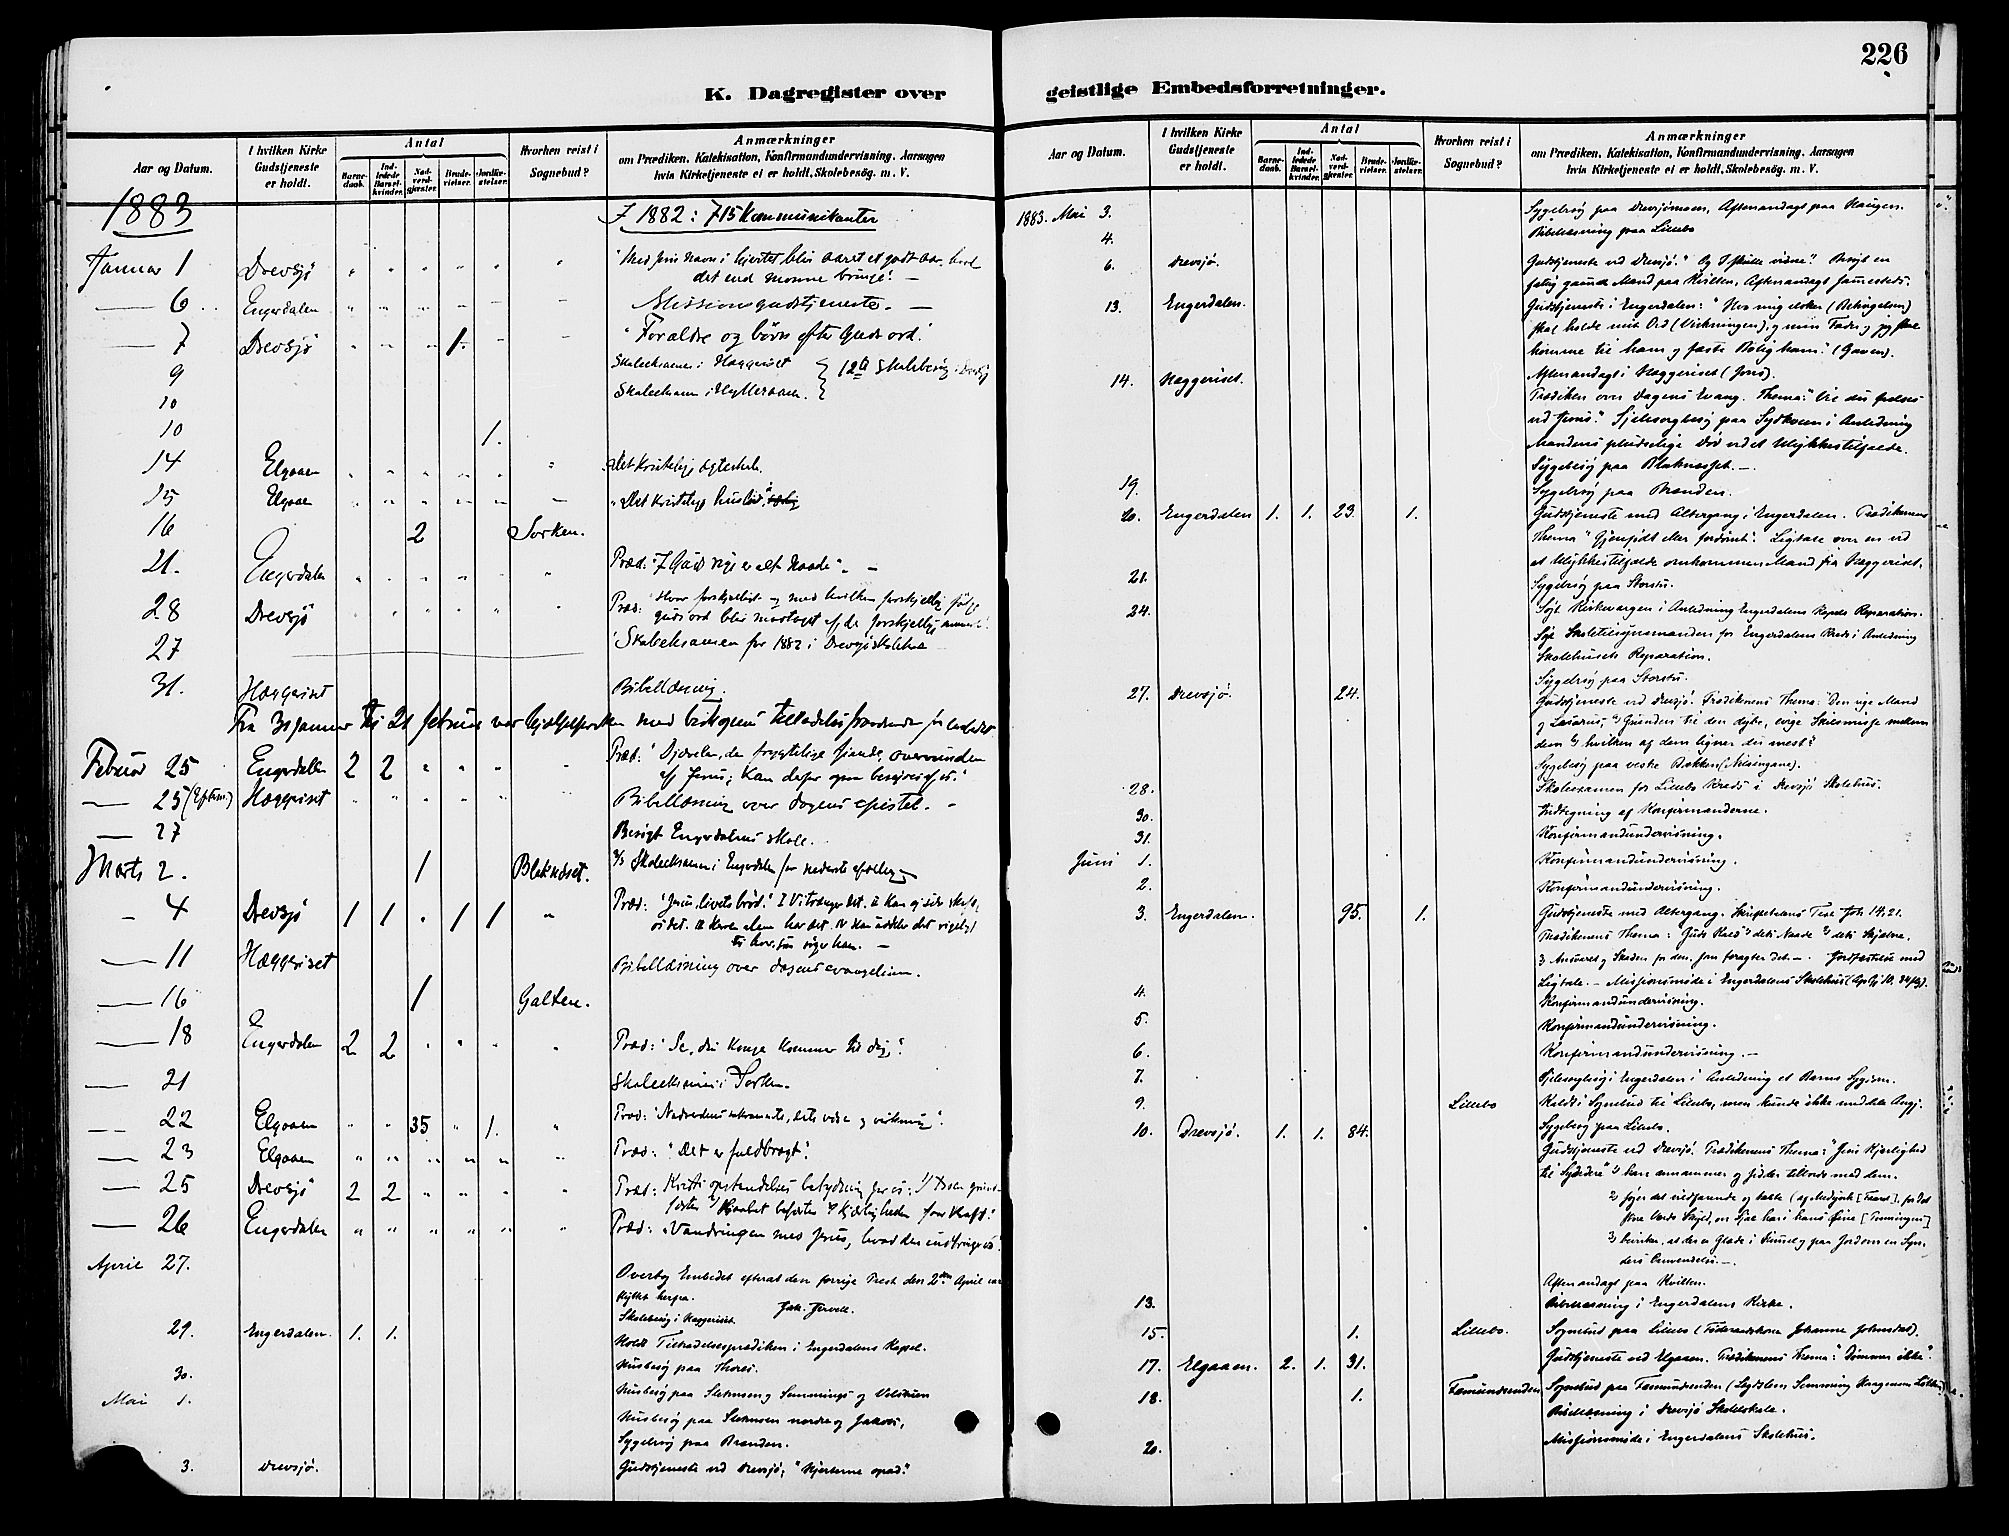 226
K. Dagregister over geistlige Embedsforretninger.
Aar og Datum.
I hvilken Kirke Gudstjeneste er holdt.
Antal
Barnedaab.
Indledede Barselkvinder.
Nadverdgjester.
Brudevielser.
Jordfæstelser.
Hvorhen reist i Sognebud?
Anmærkninger
om Prædiken, Katekisation, Konfirmandundervisning. Aarsagen
hvis Kirketjeneste ei er holdt. Skolebesøg. m. V.
1883
I 1882: 715 Kommunikanter
Januar 1 Drevsjø " " " " " " "Med Jesu navn i hjertet blir aaret et godt aar, hvad
det end monne bringe". —
— 6 Engerdalen Missionsgudstjeneste. —
— 7 Drevsjø 1. "Forældre og børn efter Guds ord".
9 Skoleeksamen i Hæggeriset
10 Skoleeksamen i Hylleraasen.
10 1.
14 Elgaaen Det kristelige ægteskab.
15 Elgaaen "Det kristelige husliv"
16 2 Sorken.
21. Engerdalen Præd: "I Guds rige er alt Naade". —
28 Drevsjø Præd: Hvor forskjelligt og med hvilken forskjellig følge
guds ord blir modtaget af de forskjellige
27 Skoleeksamen for 1882 i Drevsjø skolehus
31. Hæggeriset Bibellæsning.
Fra 31 januar til 21 februar var hjælpepresten med biskopens tilladelse fraværende fra embedet
Februar 25 Engerdalen 2 2 Præd: "Djævelen, den frygtelige fiende, overvunden
af Jesus; kan derfor ogsaa besejres af os."
— 25 (Efterm.) Hæggeriset Bibellæsning over dagens epistel. —
— 27 Besøgt Engerdalens skole.
Marts 2. 1 Blokkodset. 2/3 Skoleeksamen i Engerdalen for nederste afdeling
— 4 Drevsjø 1 1 " 1 1 " Præd: "Jesus livets brød." I Vi trænger det.
— 11 Hæggeriset Bibellæsning over dagens evangelium.
— 16 1 Galten.
— 18 Engerdalen 2 2 Præd: "Se, din Konge kommer til dig".
— 21 Skoleeksamen i Sorken.
— 22 Elgaaen 35 1. Præd: "Nadverdens sakramente, dets væsen og virkning".
— 23 Elgaaen Præd: "Det er fuldbragt".
— 25 Drevsjø 2 2 Præd: Kristi opstandelses betydning for os: 1/ Troen
fæsten 2/ Haabet befæstes 3/ kjærligheden faar kraft."
— 26 Engerdalen Præd: "Vandringen med Jesus, hvad den indbringer os".
April 27. Overtog Embedet efterat den forrige Prest den 2den April var
flyttet herfra. Jak. Jervell.
Skolebesøg i Hæggeriset.
29. Engerdalen. 1. 1. Holdt Tiltrædelsesprædiken i Engerdalens Kapel.
30. Husbesøg paa
Mai 1. Husbesøg paa Sletmoen, Semmings og
Husbesøg paa Sletmoen nordre og
Sygebesøg paa Branden.
3. Drevsjø. Gudstjeneste ved Drevsjø; "Hjerterne opad."
1883. Mai 3. Sygebesøg paa Drevsjømoen, Aftenandagt paa Haugen.
4. Bibellæsning paa Lillebo
6. Drevsjø. Gudstjeneste ved Drevsjø. "Og I skulle vidne". Besøgt en
gammel Mand paa Kvilten, Aftenandagt sammesteds.
13. Engerdalen. Gudstjeneste i Engerdalen: "Hvo mig elsker (Betingelsen)
skal holde mit Ord (Virkningen), og min Fader og jeg skal
komme til ham og fæste Bolig ham." (Gaven).
14. Hæggeriset. Aftenandagt i Hæggeriset (Jons).
Prædiken over Dagens Evang. Thema: "Vil du frelses
ved Jesus." Sjelesorgbesøg paa Sydkosen i Anledning
Mandens pludselige Død ved et Ulykkestilfælde.
Sygebesøg paa Blokkodset. —
19. Sygebesøg paa Branden.
20. Engerdalen 1. 1. 23. 1. Gudstjeneste med Altergang i Engerdalen. Prædikenens
Thema "Gjenfødt eller fordømt". Ligtale over en ved
et Ulykkestilfælde omkommen Mand fra Hæggeriset.
21. Sygebesøg paa Storstu.
24. Søgt Kirkevergen i Anledning Engerdalens Kapels Reparation.
Søgt Skoletilsynsmanden for Engerdalens Kreds i Anledning
Skolehusets Reparation.
Sygebesøg paa Storstu.
27. Drevsjø. 24. Gudstjeneste ved Drevsjø. Prædikenens Thema: Den rige Mand
og Lazarus, 1) Grunden til den dybe, evige Skilsmisse mellem
dem 2) hvilken af dem ligner du mest?
Sygebesøg paa vestre Bakken
28. Skoleexamen for Lillebo Kreds i Drevsjø Skolehus.
30. Indtegning af Konfirmanderne.
31. Konfirmandundervisning.
Juni 1. Konfirmandundervisning.
2. Konfirmandundervisning.
3. Engerdalen. 95. 1. Gudstjeneste med Altergang. Skriftetalens Text Joh. 14, 21.
Prædikenens Thema: "Guds Kald" 1) dets Naade 2) dets Skjælne.
3) Ansvaret og Skaden for den, som foragter det. —. Jordfæstelse med
Ligtale. — Missionsmøde i Engerdalens Skolehus
4. Konfirmandundervisning.
5. Konfirmandundervisning.
6. Konfirmandundervisning. —
7. Sjelesorgbesøg i Engerdalen i Anledning et Barns Sygdom.
9. Lillebo Kaldt i Sognebud til Lillebo, men kunde ikke meddele
Sygebesøg paa Lillebo.
10. Drevsjø. 1. 1. 84. Gudstjeneste ved Drevsjø. Prædikenens Thema: "Jesu Kjærlighed
til Syndere" 1) han annammer og sidder tilbords med dem.
2) søger det vildfarende og tabte
3) bevirker, at der er Glæde i Himmel og paa Jorden over en Synders
Omvendelse. —.
Aftenandagt paa Kvilten.
13. Bibellæsning i Engerdalens Kirke.
15. 1. Lillebo. Sognebud paa Lillebo (Føderaadskone Johanne Johnsdat).
17. Elgaaen. 2. 1. 31. Gudstjeneste ved Elgaaen. Prædikenens Thema: "Dømmer ikke".
18. 1. Femundsenden Sognebud paa Femundsenden
Bibellæsning i Drevsjø Skolelokale.
20. Missionsmøde i Engerdalens Skolehus.